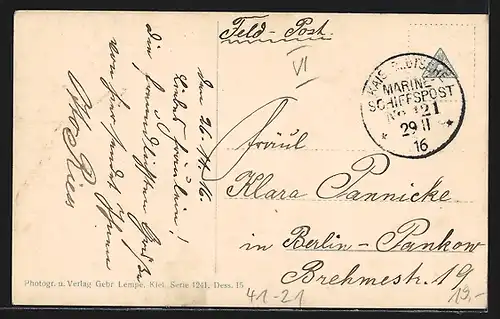 Feld-Post.
VI
KAIS. DEUTSCHE
MARINE-
SCHIFFSPOST
No 121
29 II
16
den 26. II. 16.
Liebes Fräulein!
Die freundlichsten Grüße
von hier sendet Ihnen
Otto Ries
Fräul
Klara Pannicke
in Berlin-Pankow
Brehmestr. 19
Photogr. u. Verlag Gebr Lempe, Kiel. Serie 1241, Dess. 15
41-21
19,-